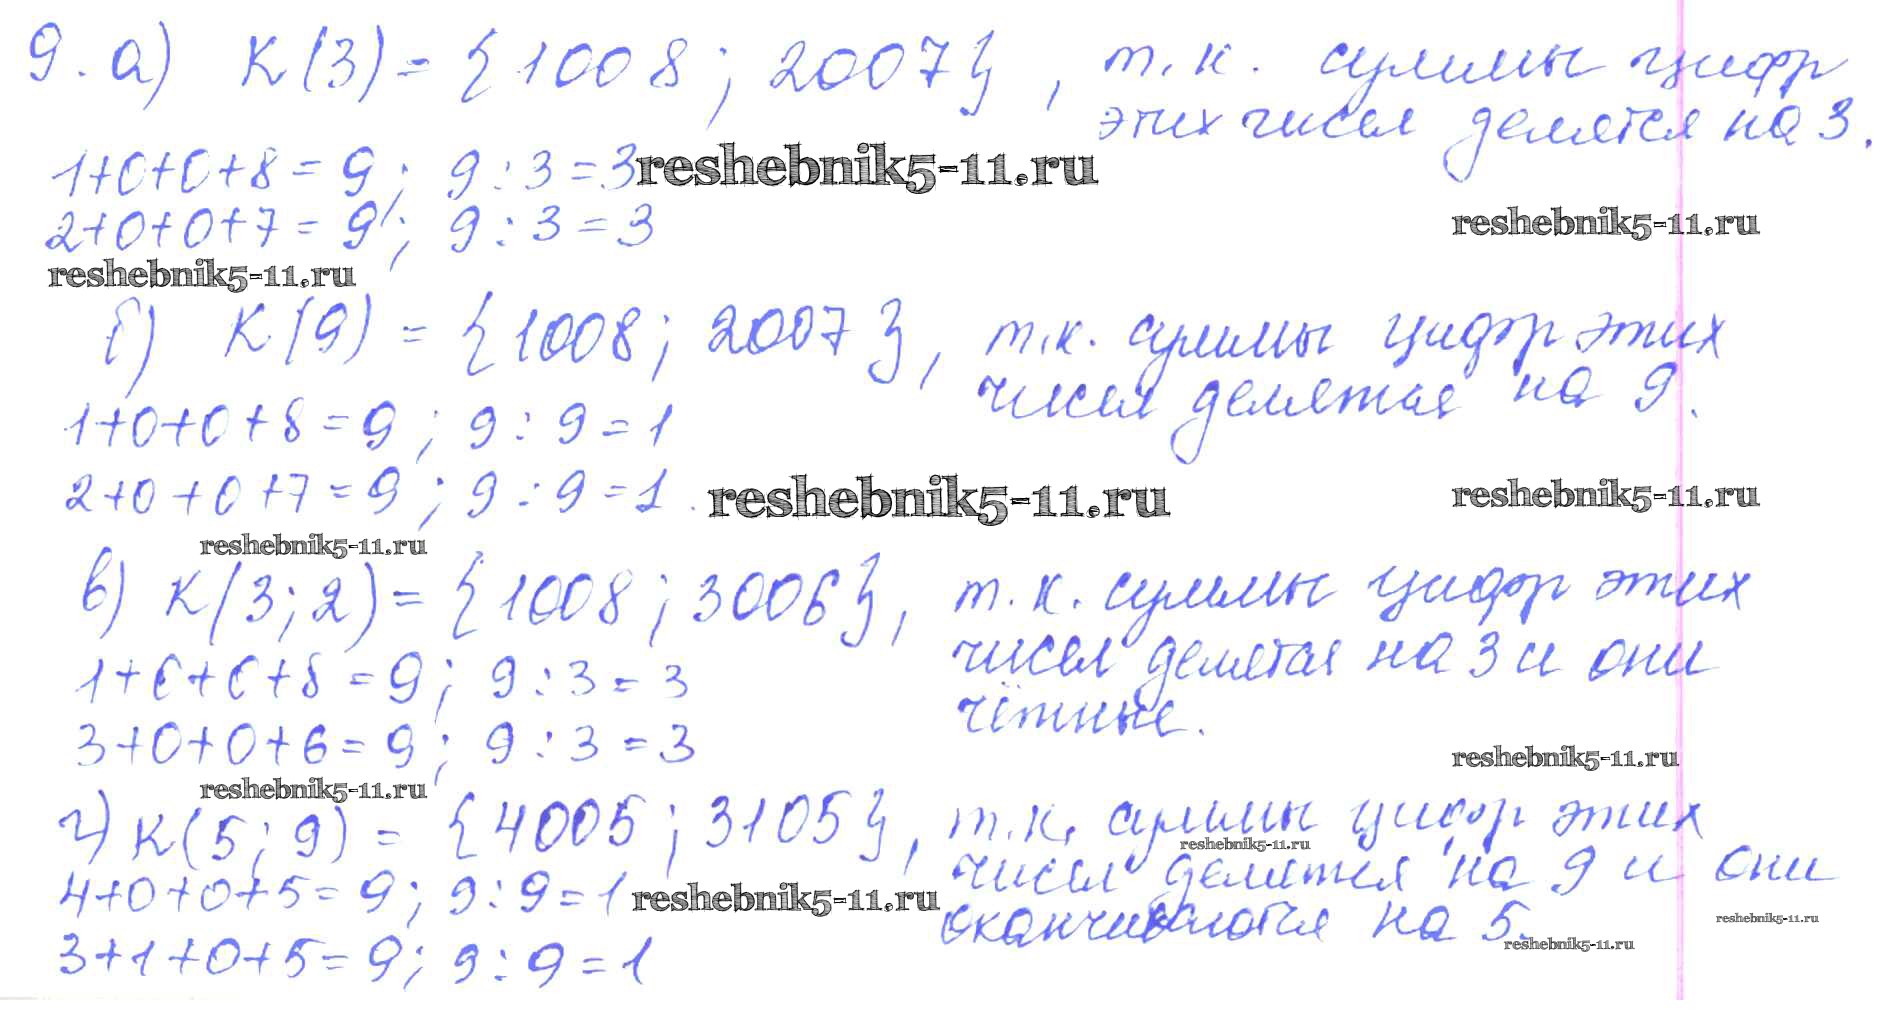 9. а) К(3) = {1008; 2007}, т.к. суммы цифр
этих чисел делятся на 3.
1+0+0+8 = 9; 9:3=3
reshebnik5-11.ru
2+0+0+7 = 9; 9:3=3
reshebnik5-11.ru
reshebnik5-11.ru
б) К(9) = {1008; 2007}, т.к. суммы цифр этих
чисел делятся на 9.
1+0+0+8 = 9; 9:9=1
2+0+0+7 = 9; 9:9=1.
reshebnik5-11.ru
reshebnik5-11.ru
reshebnik5-11.ru
в) К(3; 2) = {1008; 3006}, т.к. суммы цифр этих
чисел делятся на 3 и они
чётные.
1+0+0+8 = 9; 9:3=3
3+0+0+6 = 9; 9:3=3
reshebnik5-11.ru
reshebnik5-11.ru
г) К(5; 9) = {4005; 3105}, т.к. суммы цифр этих
reshebnik5-11.ru
чисел делятся на 9 и они
оканчиваются на 5.
4+0+0+5 = 9; 9:9=1
reshebnik5-11.ru
reshebnik5-11.ru
reshebnik5-11.ru
3+1+0+5 = 9; 9:9=1